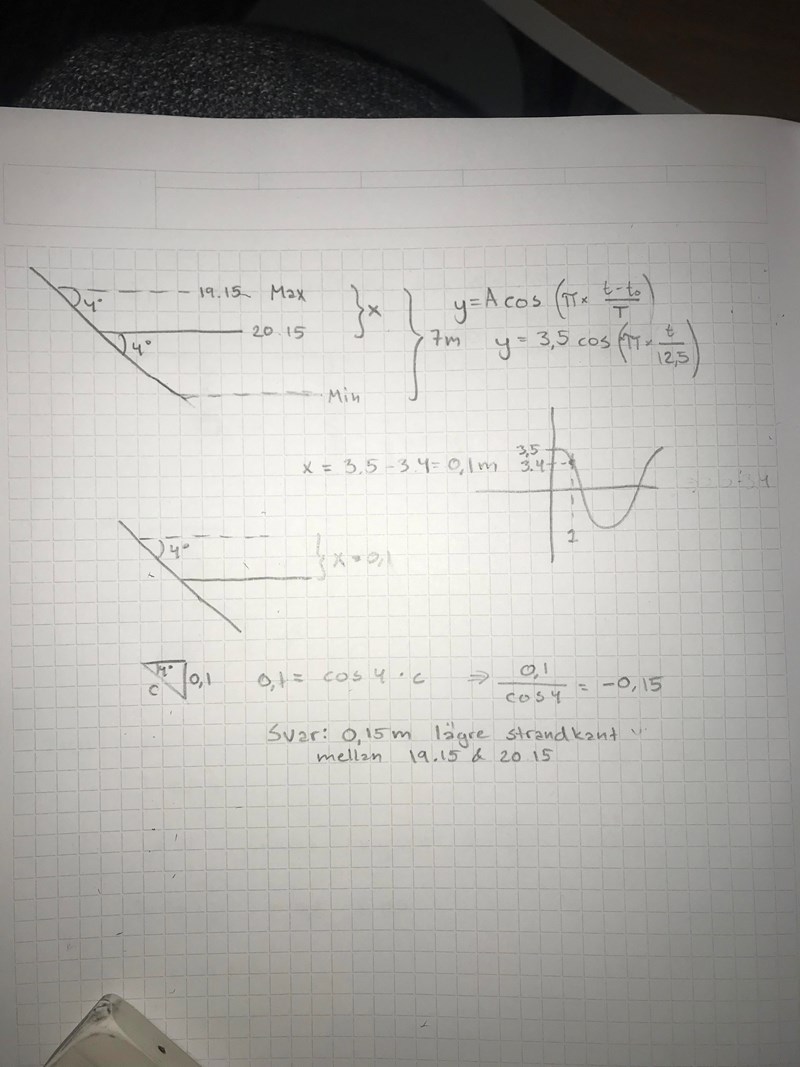 4° 19.15 Max
4° 20.15
Min
} x
} 7m
y = A cos (π × (t-t₀)/T)
y = 3,5 cos (π × t/12,5)
x = 3,5 - 3.4 = 0,1 m
3,5
3.4
1
4° } x = 0,1
4° C 0,1
0,1 = cos 4 · c ⇒ 0,1/cos 4 = -0,15
Svar: 0,15 m lägre strandkant
mellan 19.15 & 20 15